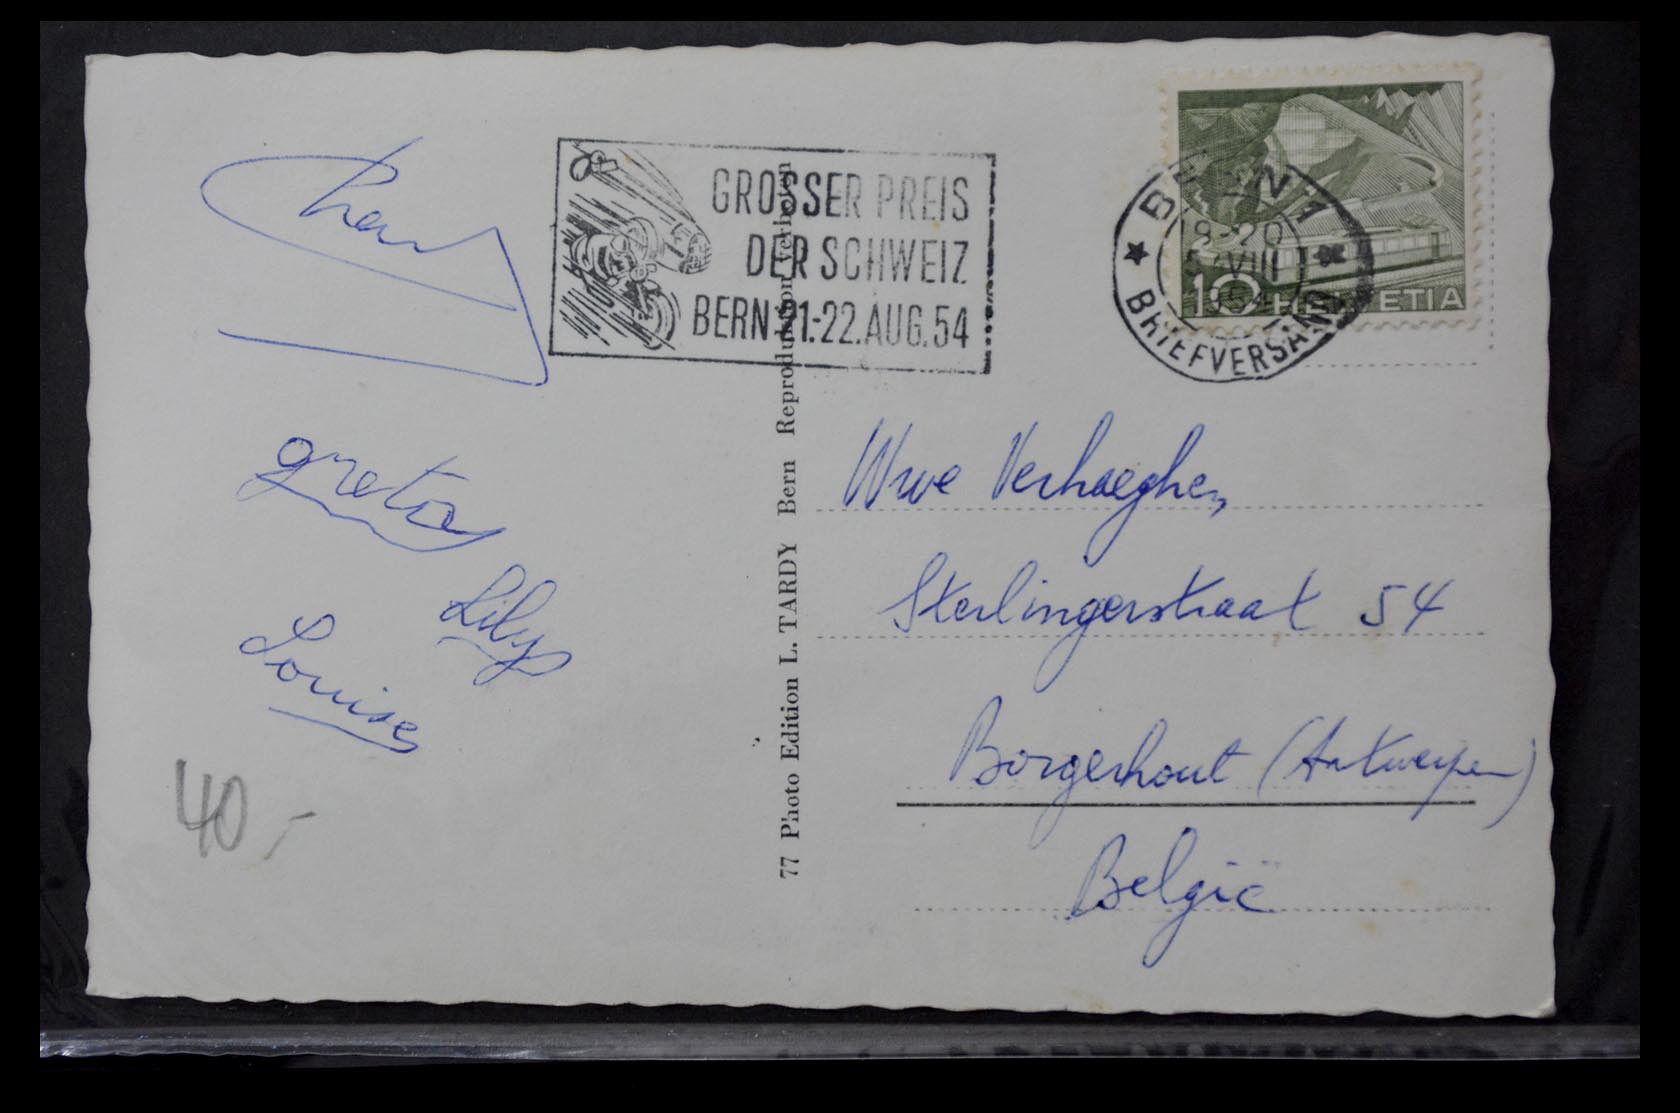 GROSSER PREIS
DER SCHWEIZ
BERN 21.-22. AUG. 54
BERN 1
18-20
5.VIII
1954
BRIEFVERSAND
10 HELVETIA
greta
Lily
Louise
40,-
77 Photo Edition L. TARDY Bern Reproduktion verboten
Wwe Verhaeghe,
Sterlingerstraat 54
Borgerhout (Antwerpen)
België